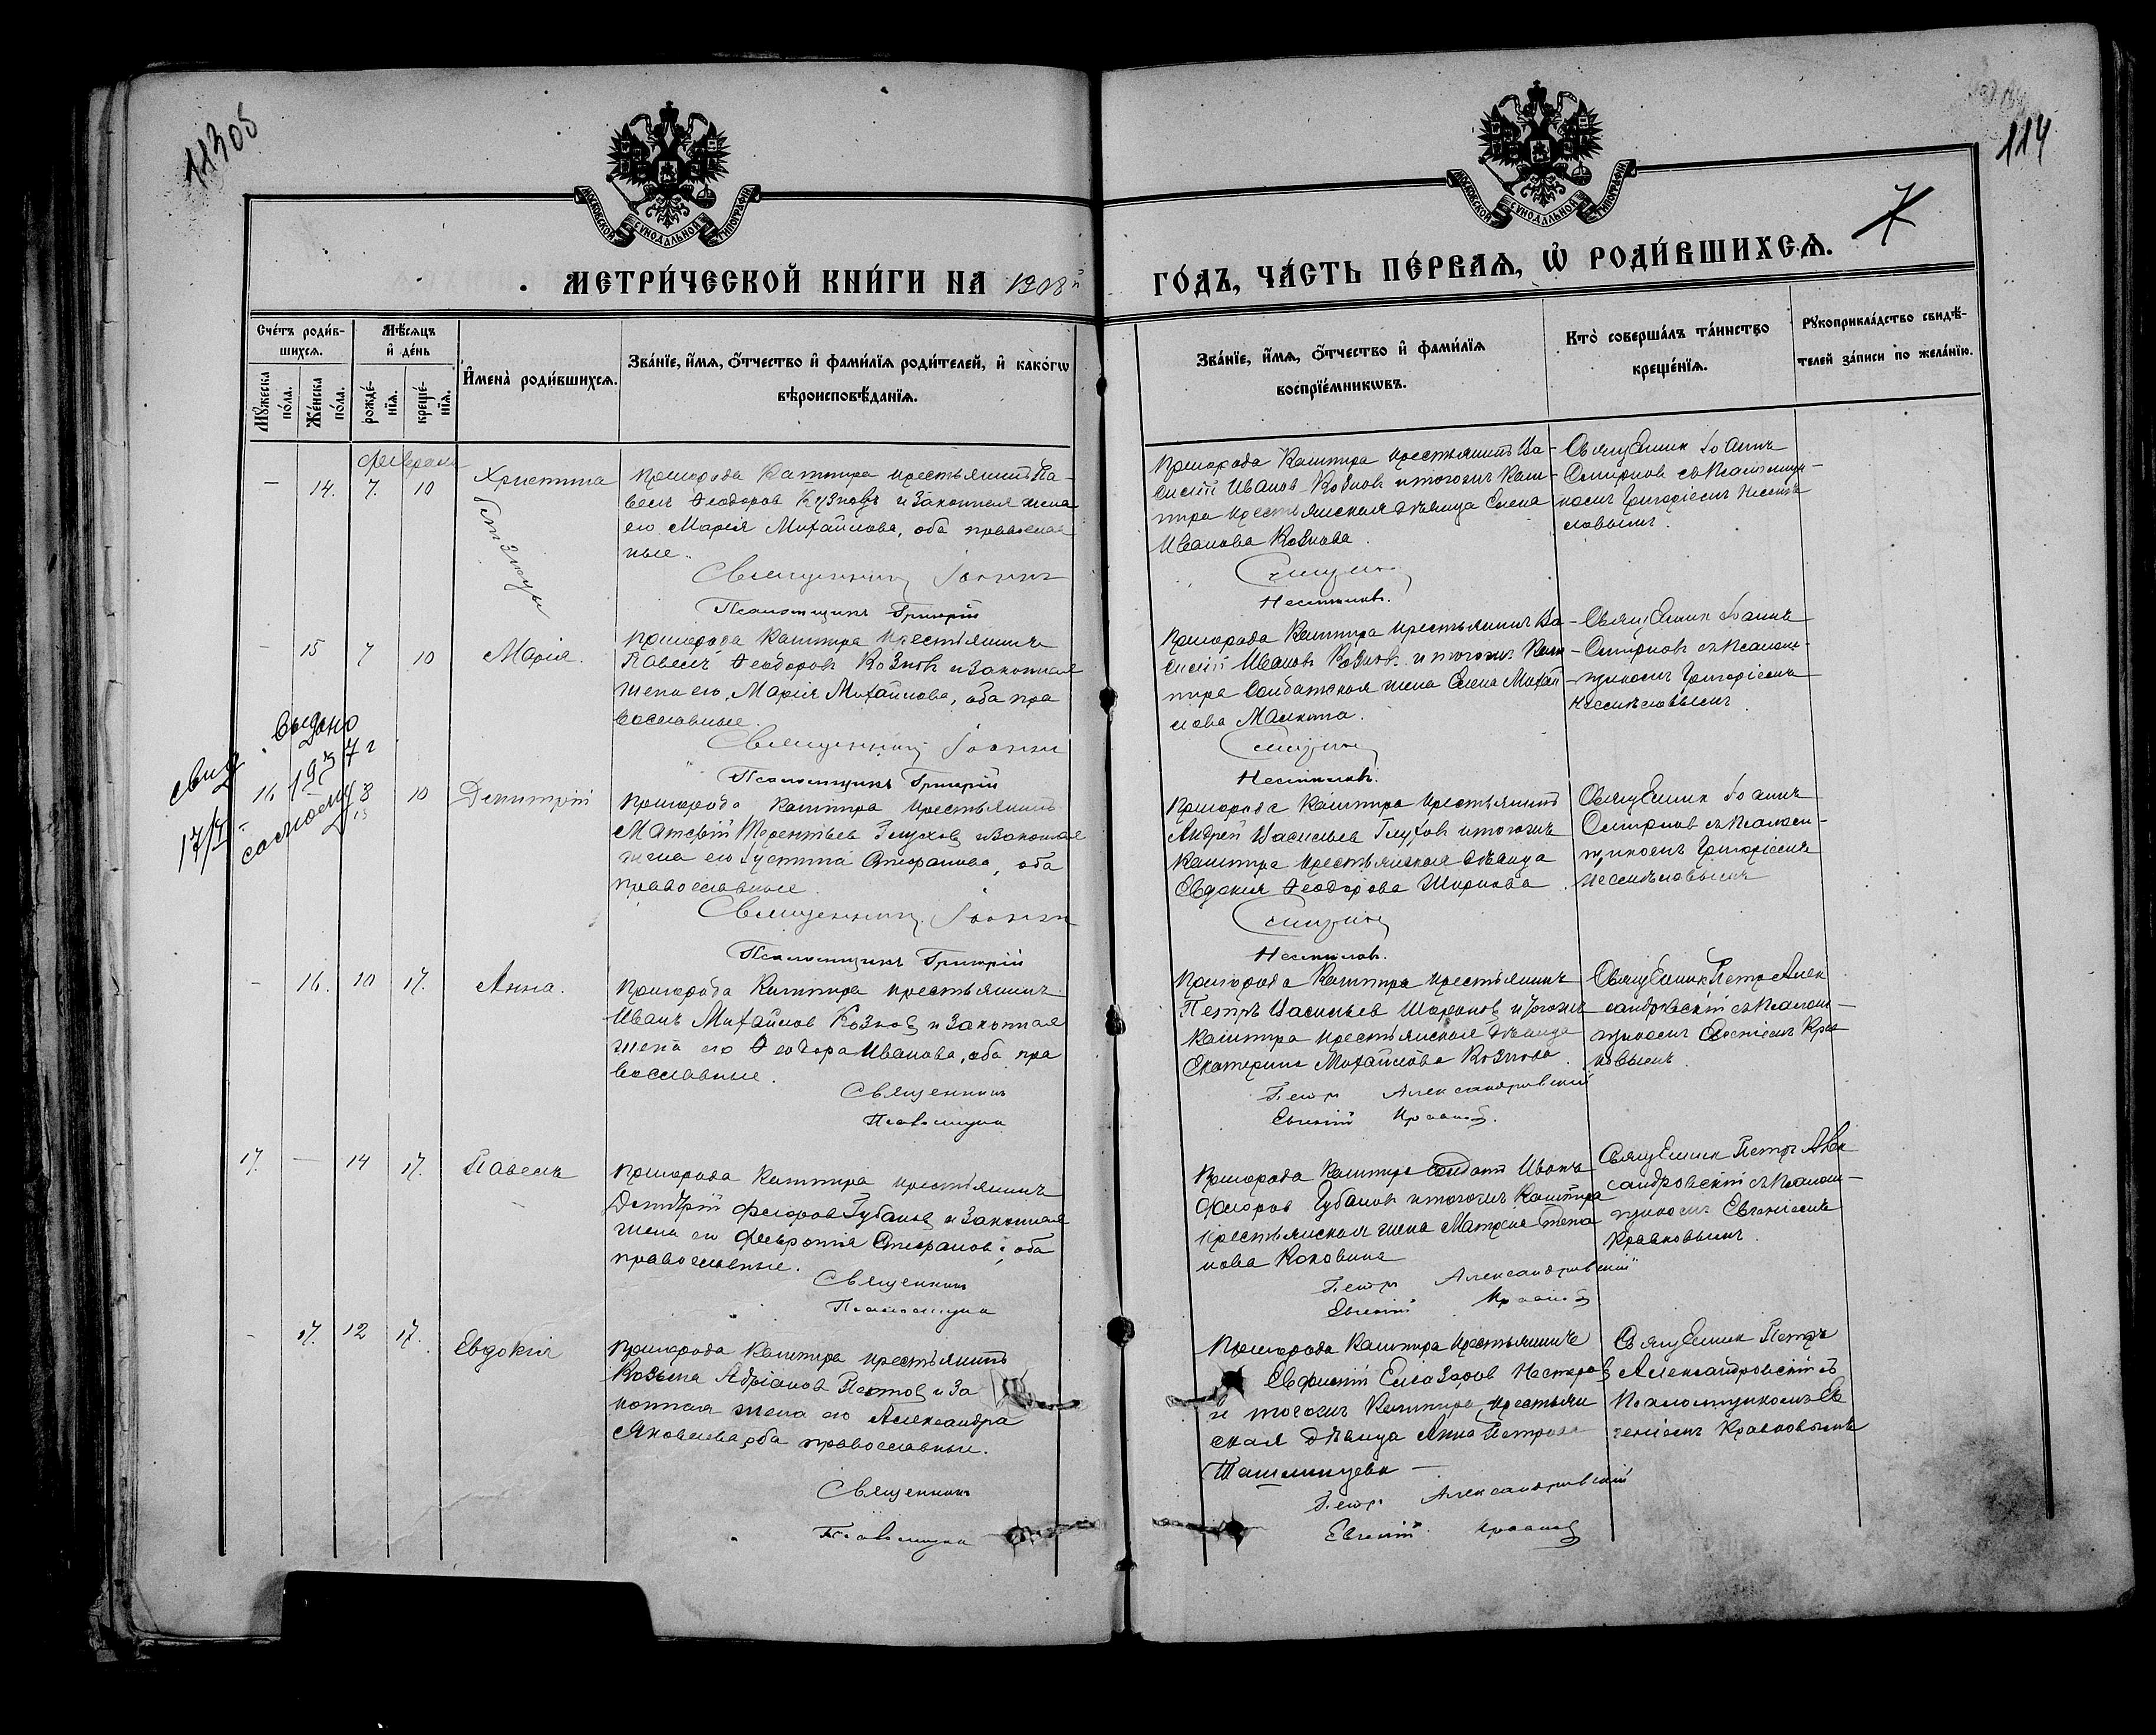 11305
114
7
МОСКОВСКОЙ СѴНОДАЛЬНОЙ ТИПОГРАФІИ
МОСКОВСКОЙ СѴНОДАЛЬНОЙ ТИПОГРАФІИ
МЕТРИ́ЧЕСКОЙ КНИ́ГИ НА 1908й ГО́ДЪ, ЧА́СТЬ ПЕ́РВАѦ, Ѡ҆ РОДИ́ВШИХСѦ.
Сче́тъ роди́в-
шихсѧ.
Мꙋ́жеска по́ла.
Же́нска по́ла.
Мѣ́сѧцъ и҆ де́нь
рожде́-нїѧ.
креще́-нїѧ.
И҆мена̀ роди́вшихсѧ.
Зва́нїе, и҆́мѧ, ѻ҆́тчество и҆ фами́лїѧ роди́телей, и҆ како́гѡ
вѣроисповѣ́данїѧ.
Зва́нїе, и҆́мѧ, ѻ҆́тчество и҆ фами́лїѧ
воспрїе́мникѡвъ.
Кто̀ соверша́лъ та́инство
креще́нїѧ.
Рꙋкоприкла́дство свидѣ́-
телей за́писи по жела́нїю.
Февраль
- 14. 7. 10 Христина
близнецы
Пригорода Каштира крестьянинъ Па-
велъ Ѳеодоровъ Козновъ и законная жена
его Марія Михайлова, оба православ
ные.
Священникъ Іоаннъ
Псаломщикъ Григорій
Пригорода Каштира крестьянинъ Ва-
силій Ивановъ Козновъ и тогожъ Каш-
тира крестьянская дѣвица Елена
Иванова Кознова.
Смирнов
Несмѣлов.
Священник Іоаннъ
Смирновъ съ Псаломщи-
комъ Григоріемъ Несмѣ
ловымъ.
- 15 7 10 Марія.
Пригорода Каштира крестьянинъ
Павелъ Ѳеодоровъ Козновъ и законная
жена его, Марія Михайлова, оба пра
вославные.
Священникъ Іоаннъ
Псаломщикъ Григорій
Пригорода Каштира крестьянинъ Ва-
силій Ивановъ Козновъ и тогожъ Каш-
тира солдатская жена Елена Михай-
лова
Смирнов
Несмѣлов.
Священник Іоаннъ
Смирновъ съ Псалом-
щикомъ Григоріемъ
Несмѣловымъ
свид. Выдано
1937 г
17/I
самому
16 - 8 10 Димитрій
Пригорода Каштира крестьянинъ
Матѳей Терентьев Глухов и законная
жена его Іустина Стефанова, оба
православные.
Священникъ Іоаннъ
Псаломщикъ Григорій
Пригорода Каштира крестьянинъ
Андрей Васильев Глухов и тогожъ
Каштира крестьянская дѣвица
Евдокія Ѳеодорова Ширкова.
Смирнов
Несмѣлов.
Священник Іоаннъ
Смирнов съ Псалом-
щикомъ Григоріемъ
Несмѣловымъ
- 16. 10 17. Анна.
Пригорода Каштира крестьянинъ
Иванъ Михайлов Кознов и законная
жена его Ѳеодора Иванова, оба пра
вославные.
Священникъ
Псаломщикъ
Пригорода Каштира крестьянинъ
Петръ Васильев и тогожъ
Каштира крестьянская дѣвица
Екатерина Михайлова Кознова.
Петр Александровскій
Евгеній Краснов.
Священник Петр Алек
сандровскій съ Псалом-
щикомъ
новымъ.
17. - 14 17. Павелъ
Пригорода Каштира крестьянинъ
Димитрій Флоров Губанов и законная
жена его Феврония Стефанова; оба
православные.
Священникъ
Псаломщикъ
Пригорода Каштира солдатъ Иванъ
Флоров Губановъ и тогожъ Каштира
крестьянская жена Матрона
нова
Петр Александровскій
Евгеній
Священник Петр Алек
сандровскій съ Псалом-
щикомъ Евгеніемъ
- 17. 12 17. Евдокія
Пригорода Каштира крестьянинъ
Козьма Адріанов и за
конная жена его Александра
Яковлева, оба православные.
Священникъ
Псаломщикъ
Пригорода Каштира крестьянинъ
Евфимій Елеазаров Нестеров
и тогожъ Каштира крестьян
ская дѣвица Анна Петрова
Ташлинцева
Петр Александровскій
Евгеній
Священник Петръ
Александровскій съ
Псаломщикомъ Ев
геніемъ